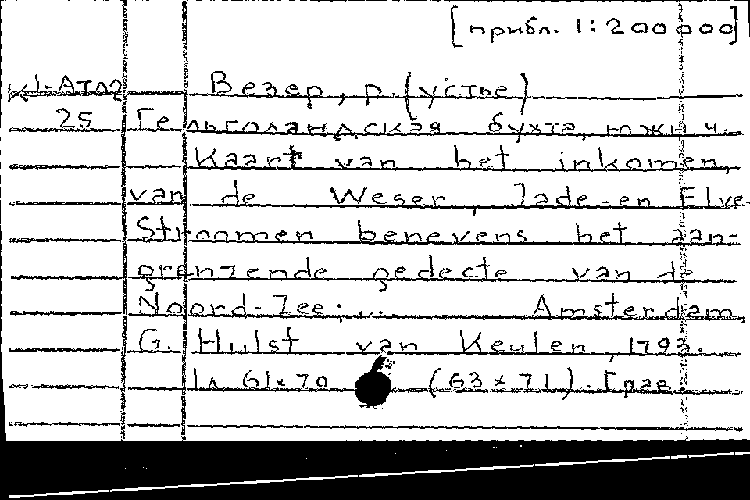 [прибл. 1:200000]
К1-Атл2 Везер, р. (устье)
25 Гельголандская бухта, южн. ч.
Kaart van het inkomen,
van de Weser, Jade-en Elve-
Stroomen benevens het aan-
grenzende gedecte van de
Noord-Zee;... Amsterdam,
G. Hulst van Keulen, 1793.
1л 61×70 (63×71). Грав.